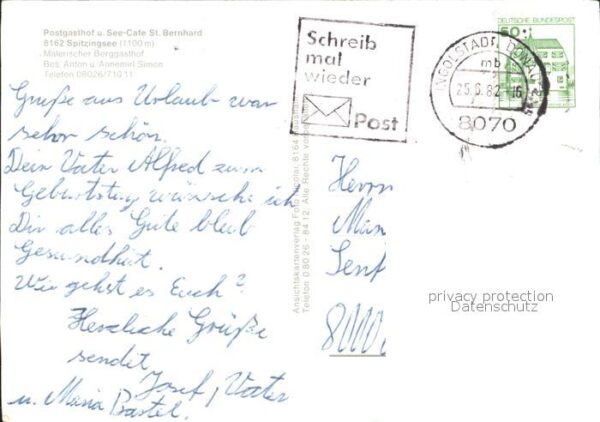 Postgasthof u. See-Cafe St. Bernhard
8162 Spitzingsee (1100 m)
Malerischer Berggasthof
Bes. Anton u. Annemirl Simon
Telefon 08026/710 11
Grüße aus Urlaub war
sehr schön.
Dein Vater Alfred zum
Geburtstag wünsche ich
Dir alles Gute bleib
Gesundheit.
Wie gehst es Euch?
Herzliche Grüße
sendet
Josef, Vater
u. Maria Bastel.
Schreib
mal
wieder
Post
DEUTSCHE BUNDESPOST
50
INGOLSTADT, DONAU
mb
25.6.82-16
8070
Ansichtskartenverlag Foto
Telefon 0 80 26 - 84 12, Alle Rechte
Herrn
Senf
8000
privacy protection
Datenschutz